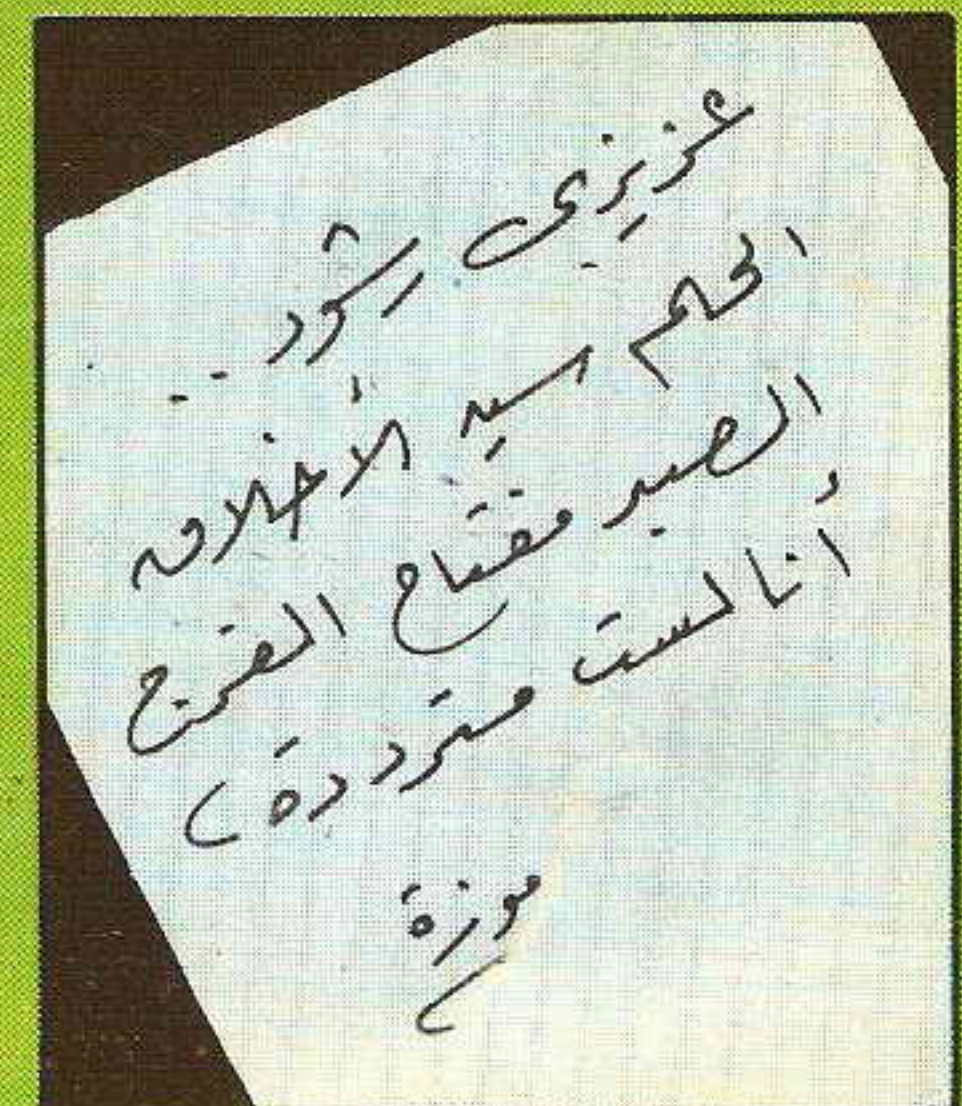 عزيزي رشود ..
الحلم سيد الأخلاق
الصبر مفتاح الفرج
أنا لست مترددة)
موزة